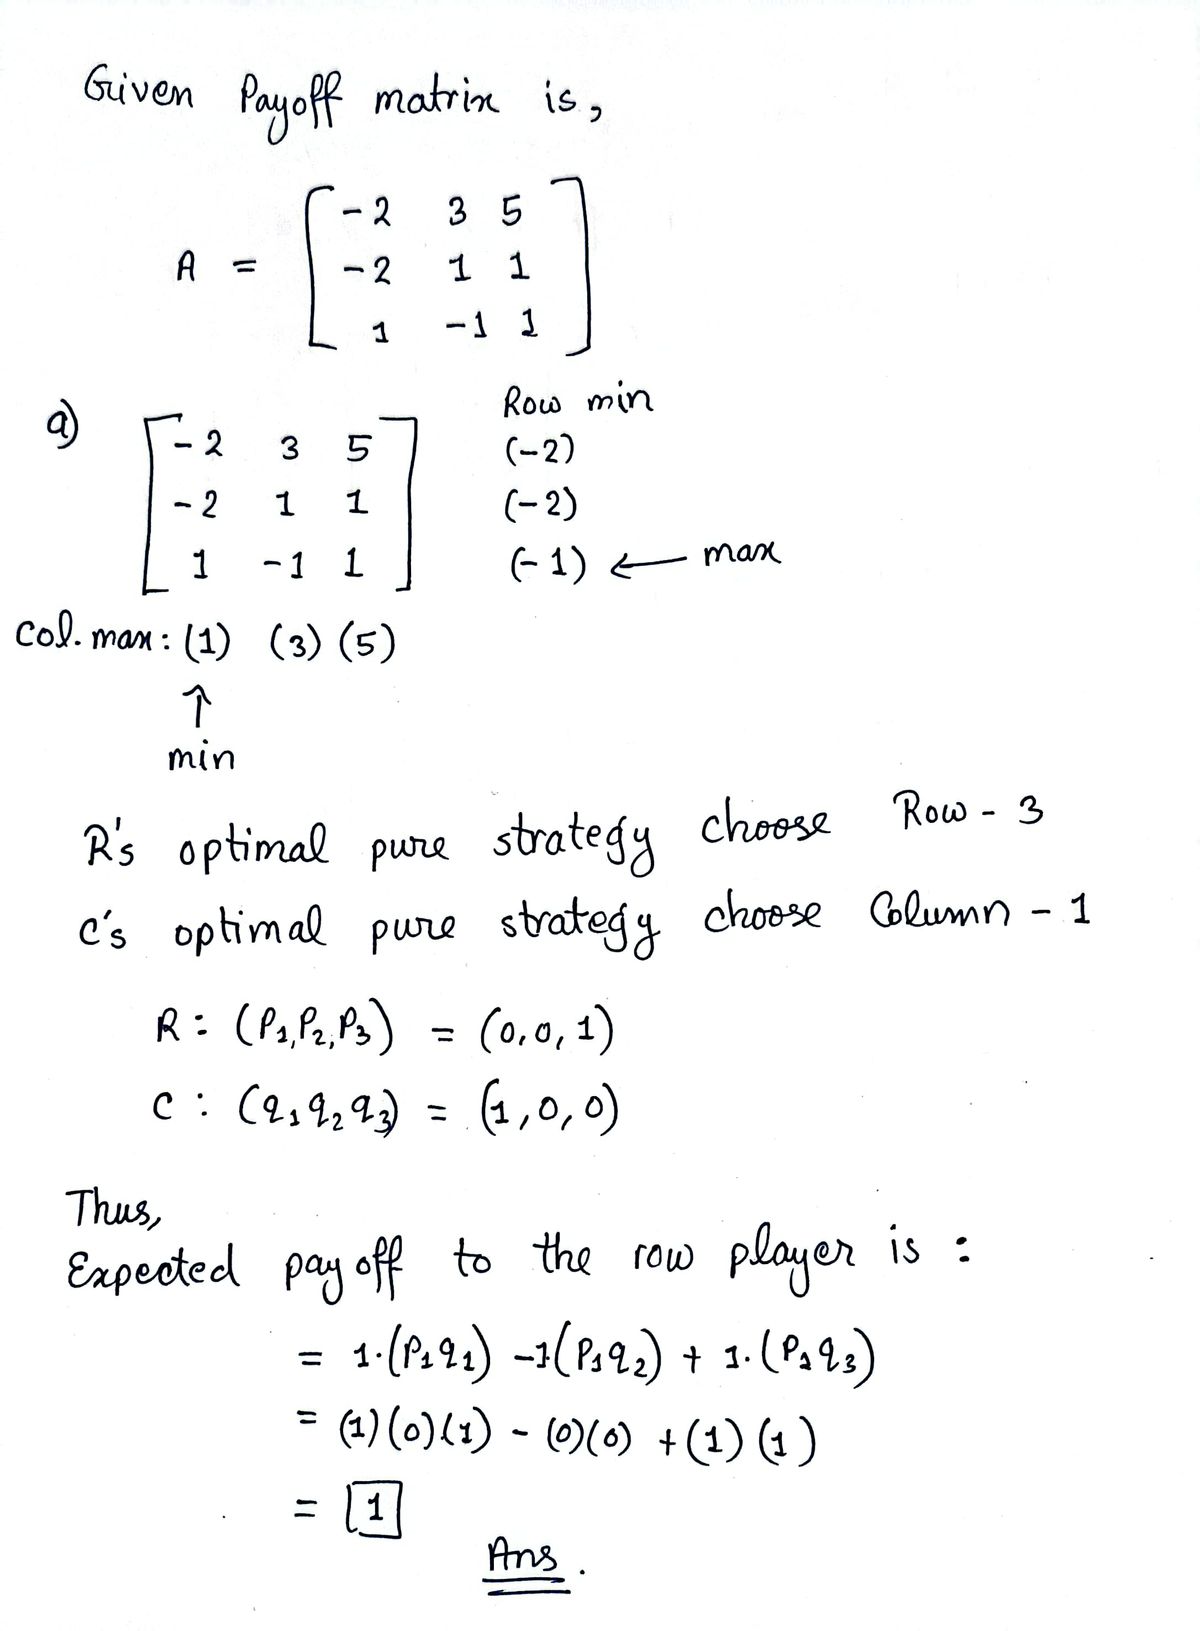 Given Payoff matrix is,
A = [ -2 3 5
-2 1 1
1 -1 1 ]
a) Row min
[ -2 3 5 ] (-2)
-2 1 1 (-2)
1 -1 1 (-1) ← max
Col. max: (1) (3) (5)
↑
min
R's optimal pure strategy choose Row - 3
C's optimal pure strategy choose Column - 1
R: (P1,P2,P3) = (0,0,1)
C: (q1 q2 q3) = (1,0,0)
Thus,
Expected payoff to the row player is :
= 1·(P1q1) -1(P1q2) + 1·(P1q3)
= (1)(0)(1) - (0)(0) + (1)(1)
= 1
Ans.